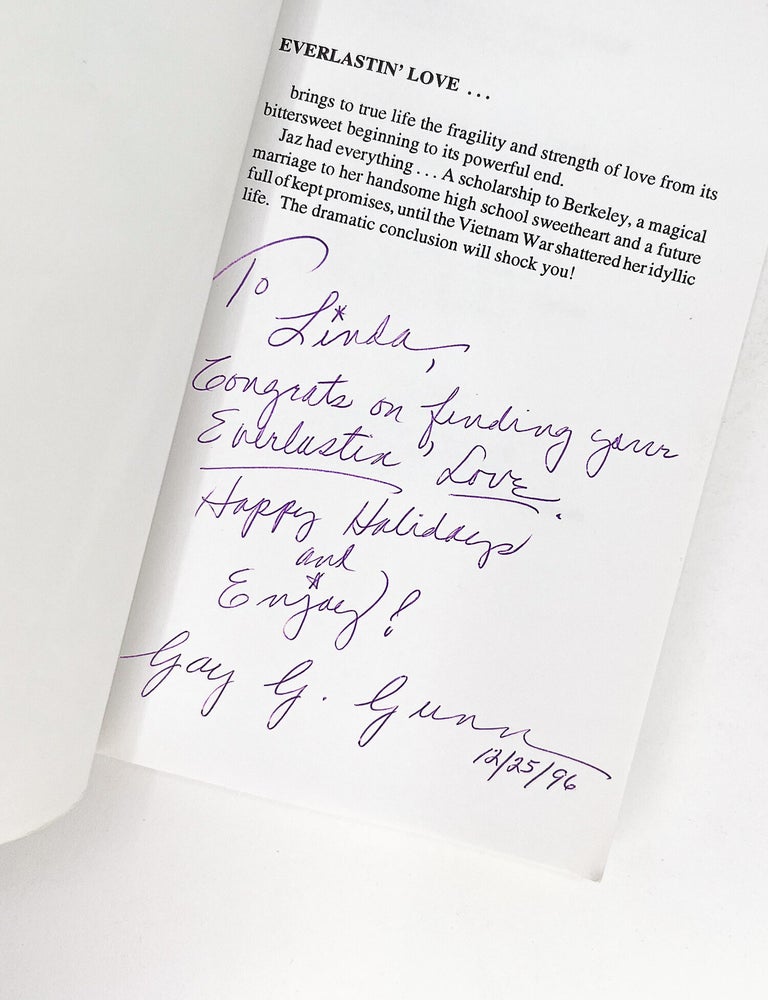 EVERLASTIN' LOVE . . .
brings to true life the fragility and strength of love from its
bittersweet beginning to its powerful end.
Jaz had everything . . . A scholarship to Berkeley, a magical
marriage to her handsome high school sweetheart and a future
full of kept promises, until the Vietnam War shattered her idyllic
life. The dramatic conclusion will shock you!
To
Linda,
Congrats on finding your
Everlastin' Love.
Happy Holidays
and
Enjoy!
Gay G. Gunn
12/25/96